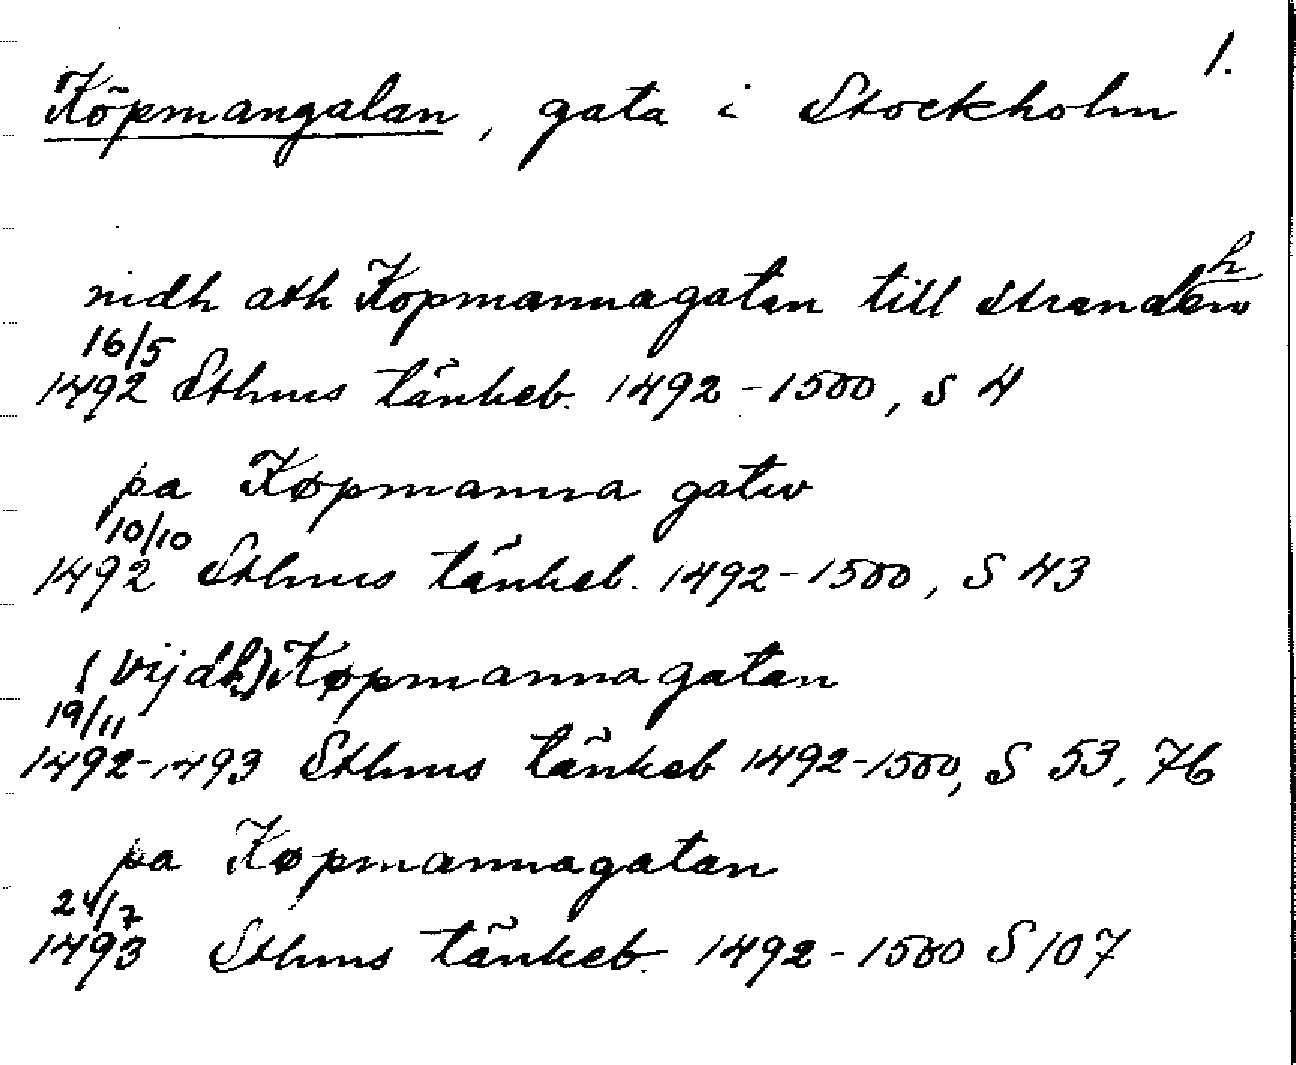 1.
Köpmangatan, gata i Stockholm
nidh ath Kopmannagatan till stranden
h
16/5
1492 Sthms tänkeb. 1492-1500, S 4
pa Køpmanna gatw
10/10
1492 Sthms tänkeb. 1492-1500, S 43
(vijdh) Køpmannagatan
19/11
1492-1493 Sthms tänkeb 1492-1500, S 53, 76
pa Køpmannagatan
24/7
1493 Sthms tänkeb. 1492-1500 S 107